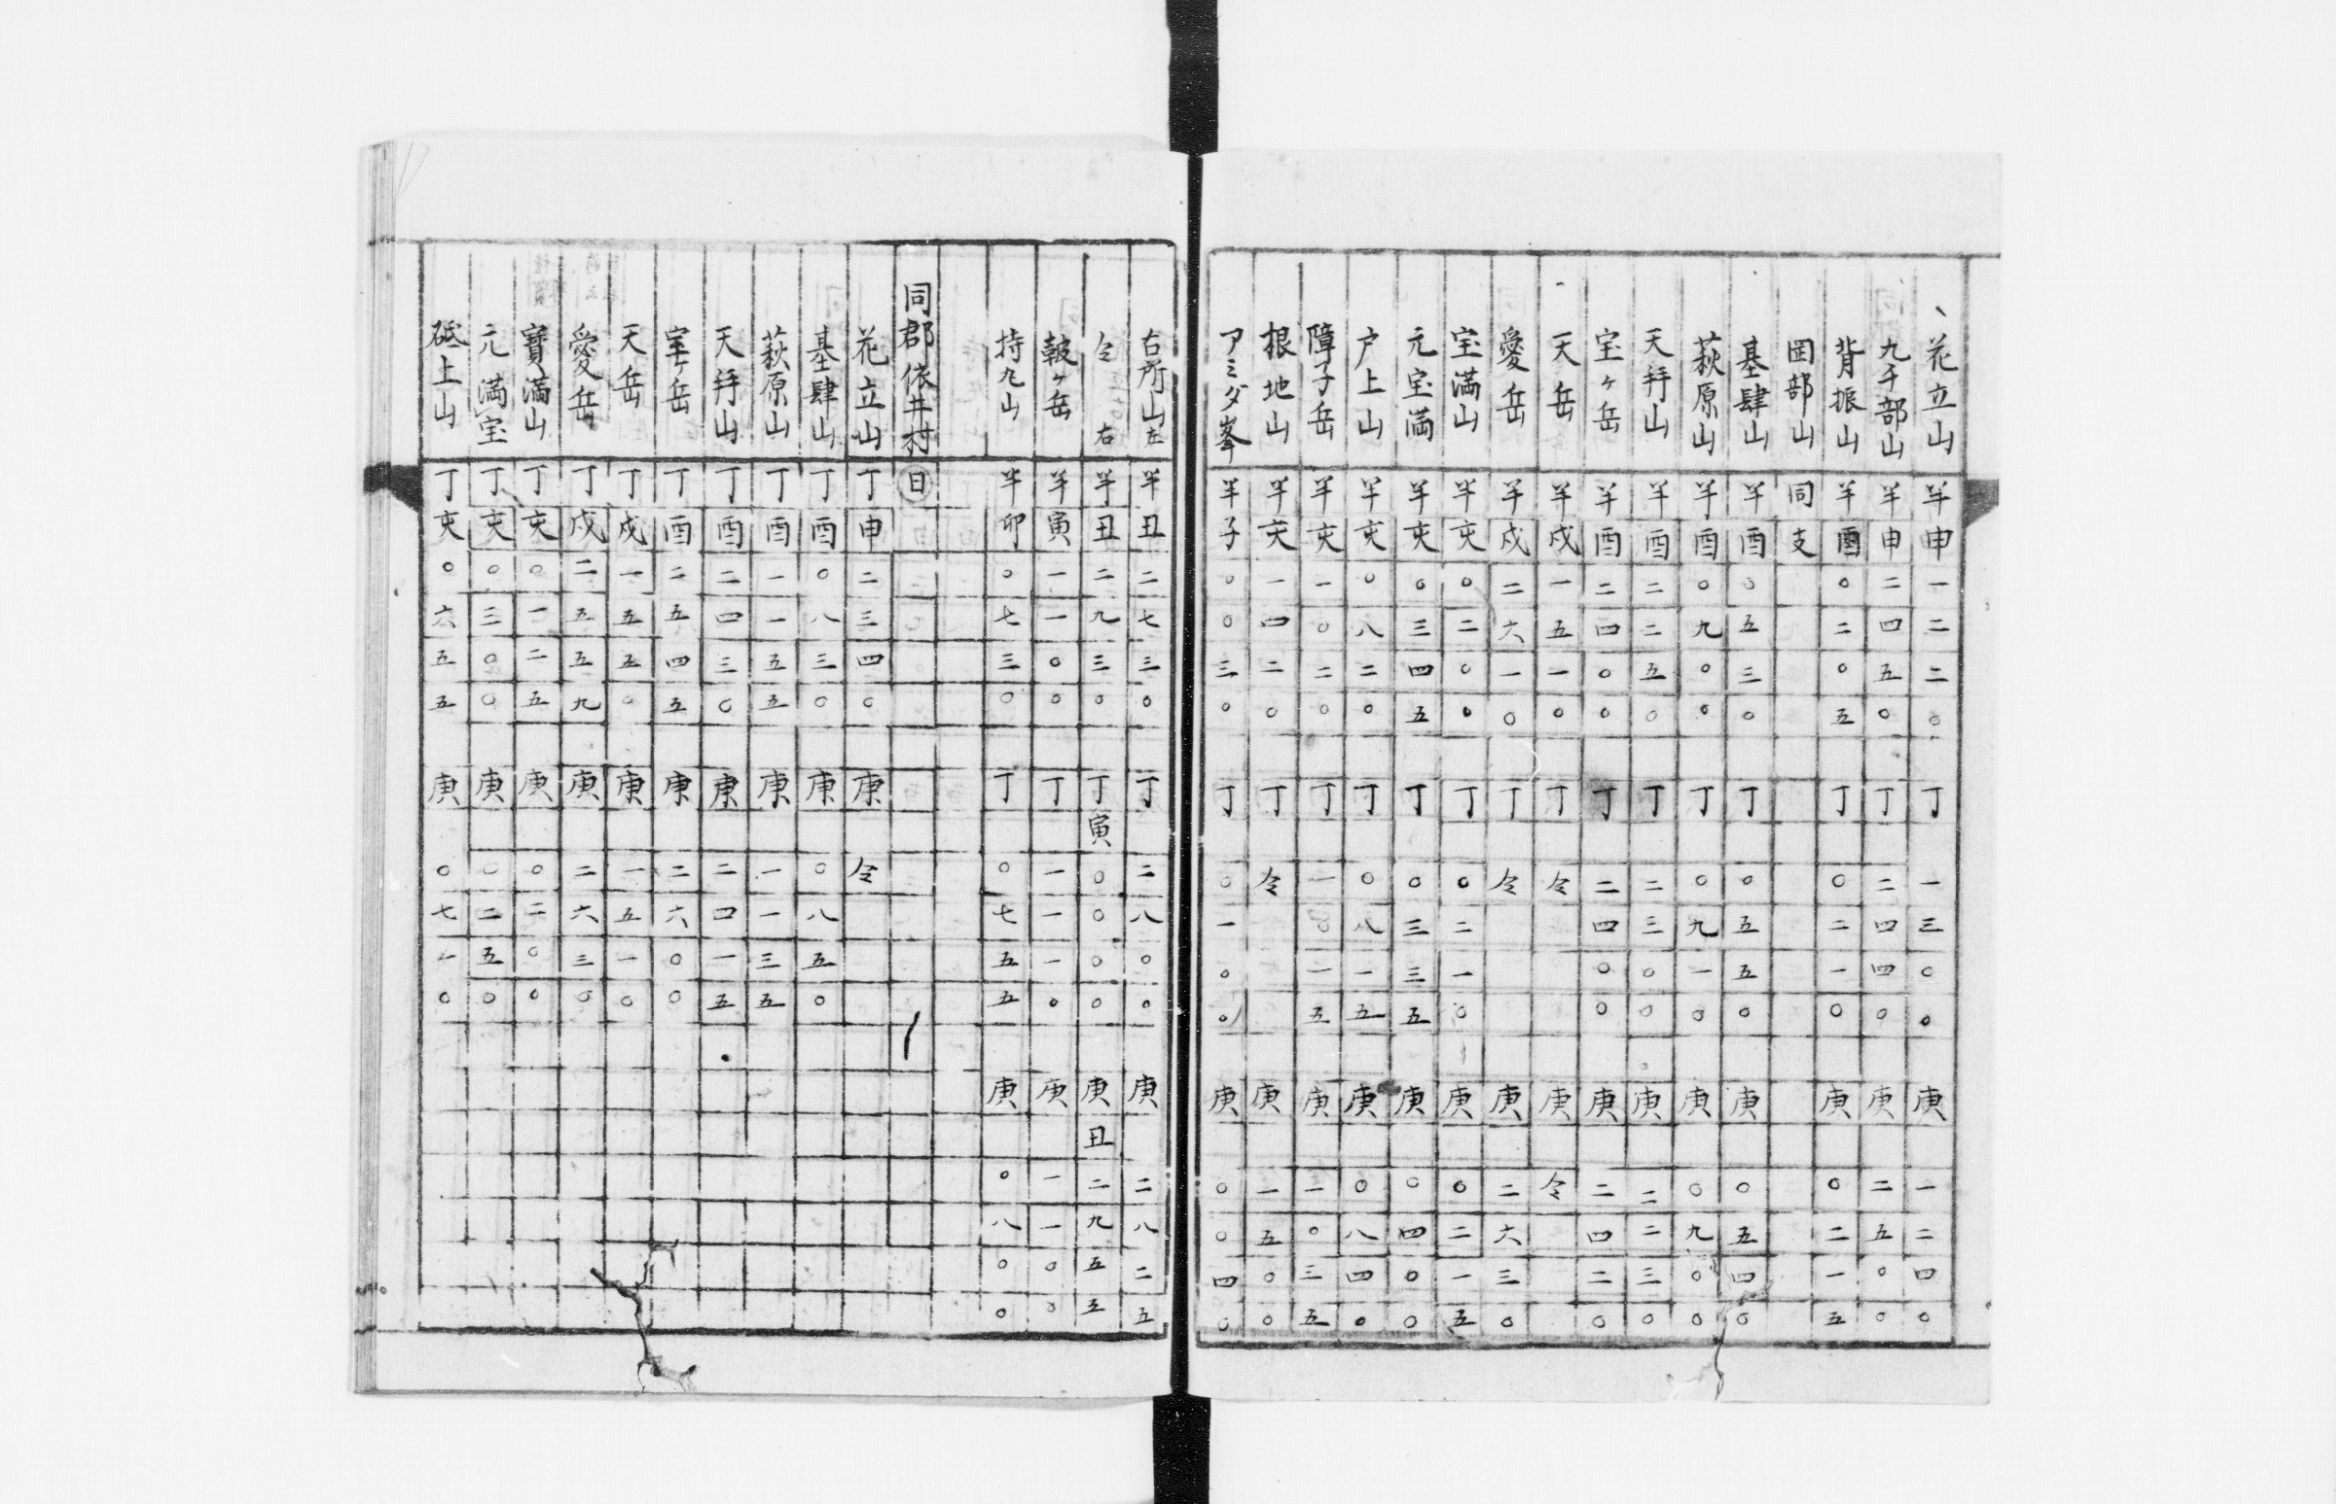 花立山 半申一二二〇 丁一三〇〇 庚一二四〇
九千部山 半申二四五〇 丁二四四〇 庚二五〇〇
背振山 半酉〇二〇五 丁〇二一〇 庚〇二一五
岡部山 同支
基肆山 半酉〇五三〇 丁〇五五〇 庚〇五四〇
萩原山 半酉〇九〇〇 丁〇九一〇 庚〇九〇〇
天拜山 半酉二二五〇 丁二三〇〇 庚二二三〇
宝ヶ岳 半酉二四〇〇 丁二四〇〇 庚二四二〇
天岳 半戌一五一〇 丁仝 庚仝
愛岳 半戌二六一〇 丁仝 庚二六三〇
宝満山 半亥〇二〇〇 丁〇二一〇 庚〇二一五
元宝満 半亥〇三四五 丁〇三三五 庚〇四〇〇
戸上山 半亥〇八二〇 丁〇八一五 庚〇八四〇
障子岳 半亥一〇二〇 丁一〇一五 庚一〇三五
根地山 半亥一四二〇 丁仝 庚一五〇〇
アミダ峯 半子〇〇三〇 丁〇一〇〇 庚〇〇四〇
右所山左 半丑二七三〇 丁二八〇〇 庚二八二五
仝右 半丑二九三〇 丁寅〇〇〇〇 庚丑二九五五
皷ヶ岳 半寅一一〇〇 丁一一一〇 庚一一〇〇
持丸山 半卯〇七三〇 丁〇七五五 庚〇八〇〇
同郡依井村 日
花立山 丁申二三四〇 庚仝
基肆山 丁酉〇八三〇 庚〇八五〇
萩原山 丁酉一一五五 庚一一三五
天拜山 丁酉二四三〇 庚二四一五
宝ヶ岳 丁酉二五四五 庚二六〇〇
天岳 丁戌一五五〇 庚一五一〇
愛岳 丁戌二五五九 庚二六三〇
寳満山 丁亥〇一二五 庚〇二〇〇
元満宝 丁亥〇三〇〇 庚〇二五〇
砥上山 丁亥〇六五五 庚〇七一〇